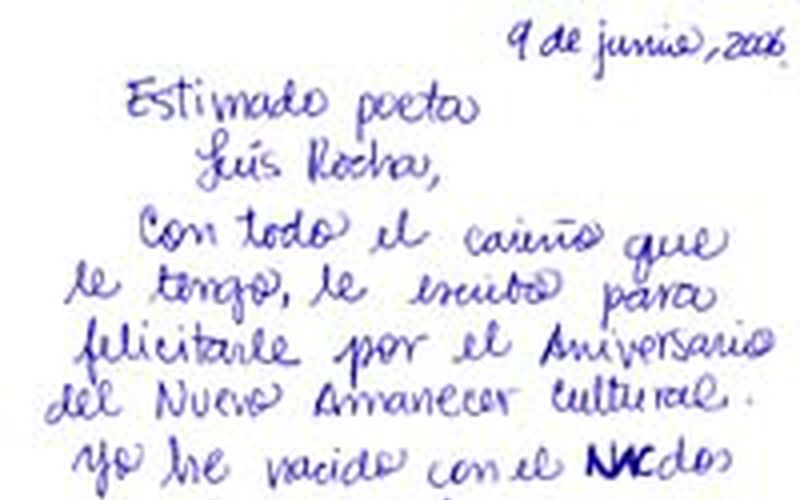 9 de junio, 2006.
Estimado poeta
Luis Rocha,
Con todo el cariño que
le tengo, le escribo para
felicitarle por el Aniversario
del Nuevo Amanecer Cultural.
Yo he nacido con el NAC dos